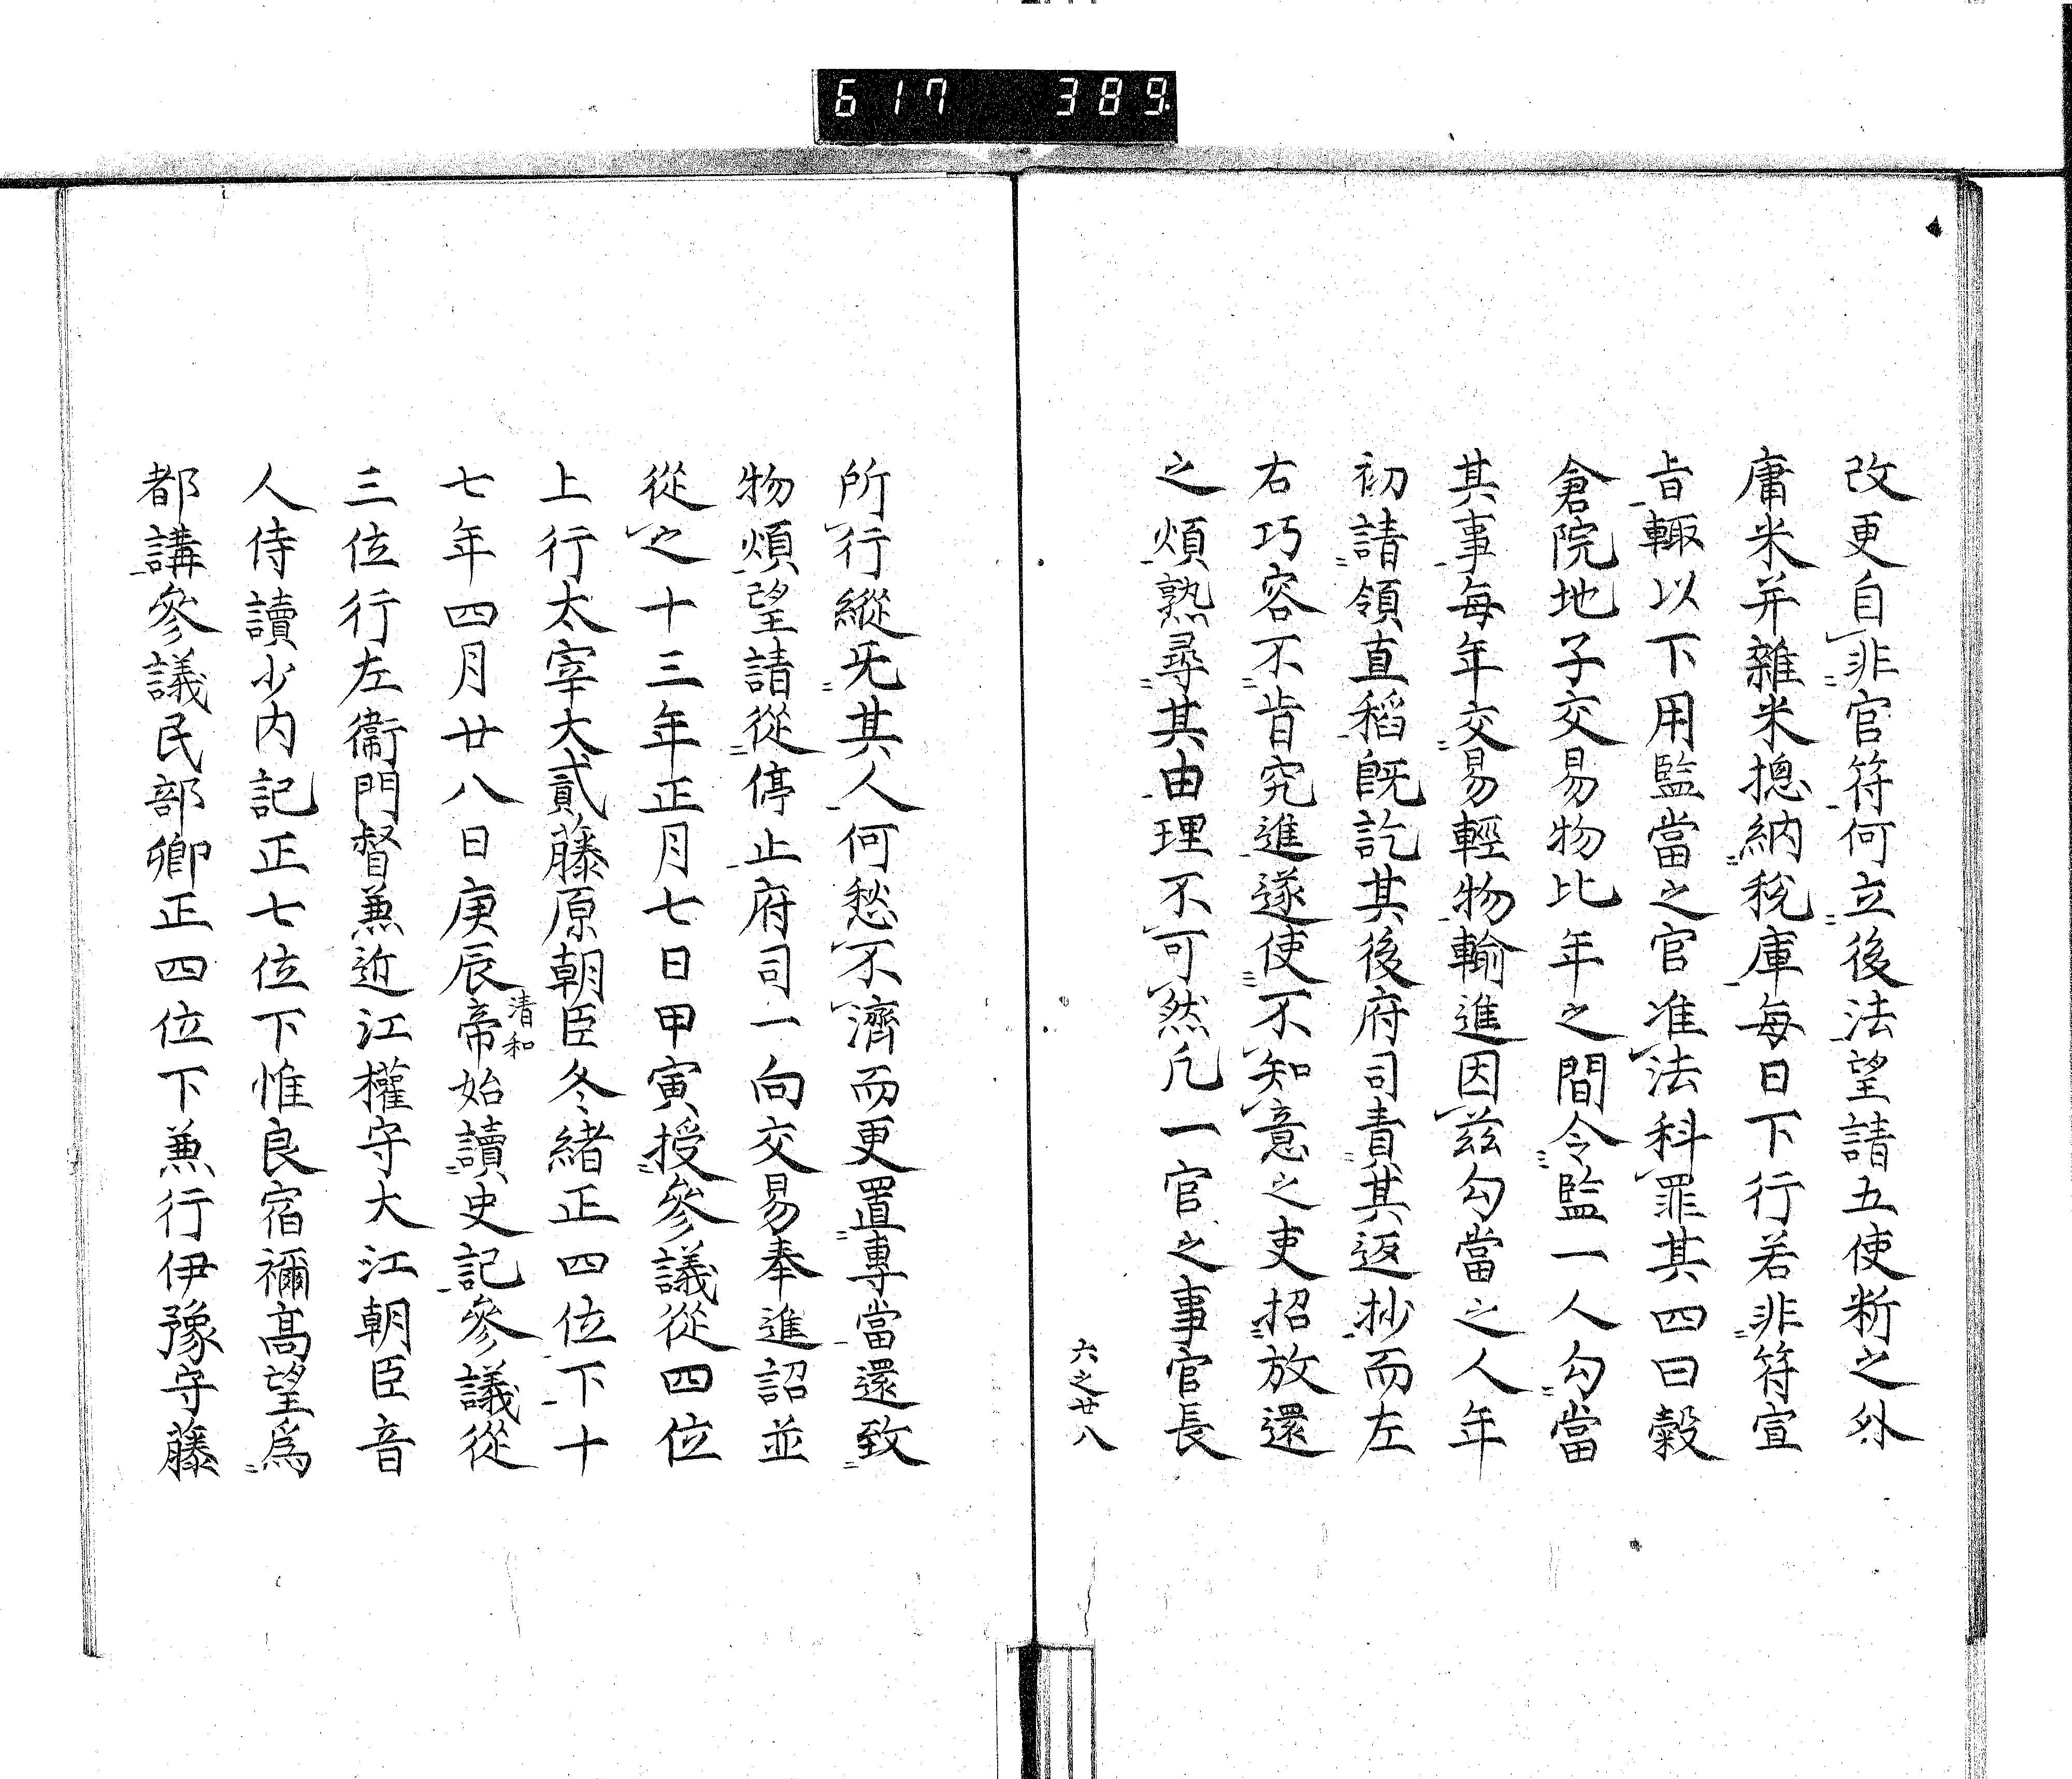 617 389
改更自非官符何立後法望請五使断之外
庸米并雜米揔納税庫毎日下行若非符宣
旨輙以下用監當之官准法科罪其四曰穀
倉院地子交易物比年之間令監一人勾當
其事毎年交易輕物輸進因茲勾當之人年
初請領直稻既訖其後府司責其返抄而左
右巧容不肯究進遂使不知意之吏招放還
之煩熟尋其由理不可然凡一官之事官長
六之廿八
所行縱旡其人何愁不濟而更置專當還致
物煩望請從停止府司一向交易奉進詔並
從之十三年正月七日甲寅授參議從四位
上行太宰大貳藤原朝臣冬緒正四位下十
七年四月廿八日庚辰帝清和始讀史記參議從
三位行左衞門督兼近江權守大江朝臣音
人侍讀少内記正七位下惟良宿禰高望爲
都講參議民部卿正四位下兼行伊豫守藤